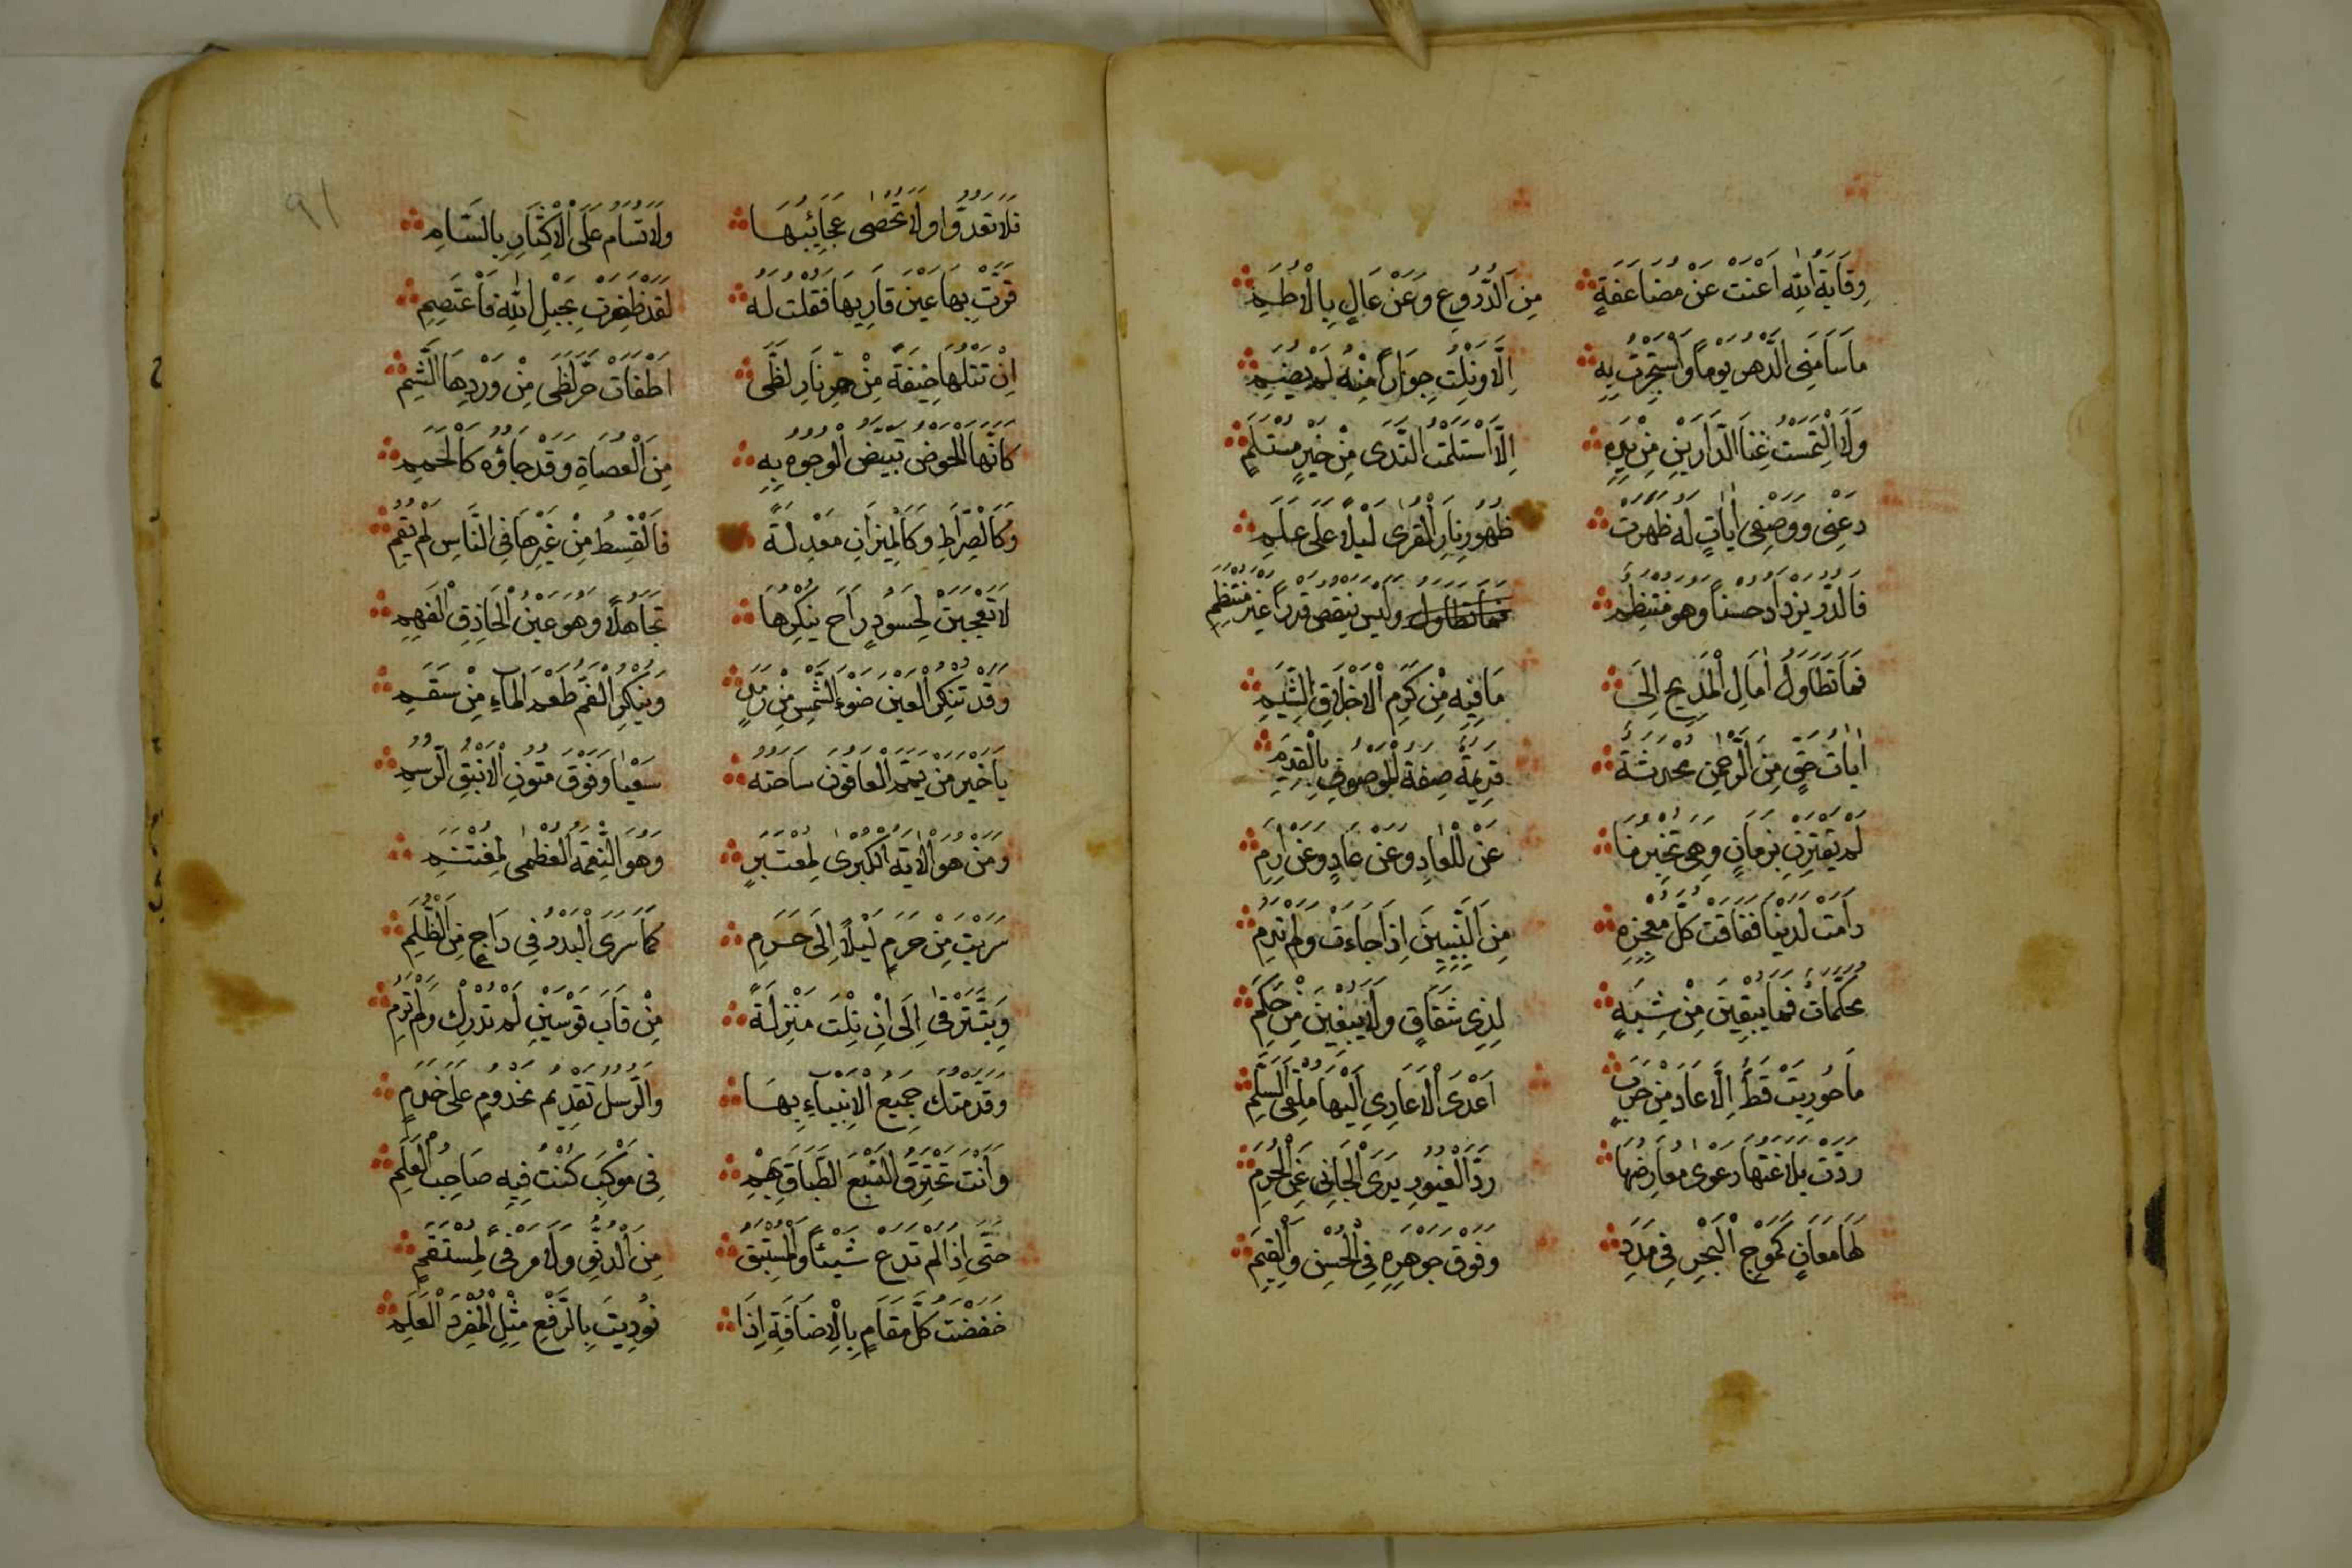 وِقَايَةُ اللهِ اَغْنَتْ عَنْ مُضَاعَفَةٍ مِنَ الدُّرُوعِ وَعَنْ عَالٍ بِالْاُطُمِ
مَا سَامَنِى الدَّهْرُ يَوْماً وَاسْتَجَرْتُ بِهِ اِلَّا وَنِلْتُ جِوَاراً مِنْهُ لَمْ يُضَمِ
وَلَا الْتَمَسْتُ غِنَا الدَّارَيْنِ مِنْ يَدِهِ اِلَّا اسْتَلَمْتُ النَّدَى مِنْ خَيْرِ مُسْتَلَمٍ
دَعْنِى وَوَصْفِى اٰيَاتٍ لَهُ ظَهَرَتْ ظُهُورَ نَارِ الْقِرٰى لَيْلاً عَلَى عَلَمِ
فَالدُّرُّ يَزْدَادُ حُسْناً وَهُوَ مُنْتَظِمٌ فما تطاول وَلَيْسَ يَنْقُصُ قَدْراً غَيْرَ مُنْتَظِمِ
فَمَا تَطَاوَلُ اٰمَالِ الْمَدِيحِ اِلَى مَا فِيهِ مِنْ كَرَمِ الْاَخْلَاقِ الشِّيَمِ
اٰيَاتُ حَقٍّ مِنَ الرَّحْمٰنِ مُحْدَثَةٌ قَدِيمَةٌ صِفَةُ الْمَوْصُوفِ بِالْقِدَمِ
لَمْ تَقْتَرِنْ بِزَمَانٍ وَهِىَ تُخْبِرُنَا عَنْ الْمَعَادِ وَعَنْ عَادٍ وَعَنْ اِرَمِ
دَامَتْ لَدَيْنَا فَفَاقَتْ كُلَّ مُعْجِزَةٍ مِنَ النَّبِيِّينَ اِذَا جَاءَتْ وَلَمْ تَدُمِ
مُحَكَّمَاتٌ فَمَا يُبْقِينَ مِنْ شِبَهٍ لِذِى شِقَاقٍ وَلَا يَبْغِينَ مِنْ حَكَمِ
مَا حُورِبَتْ قَطُّ اِلَّا عَادَ مِنْ حَرَبٍ اَعْدَى الْاَعَادِى اِلَيْهَا مُلْقِىَ السَّلَمِ
رَدَّتْ بَلَاغَتُهَا دَعْوٰى مُعَارِضِهَا رَدَّ الْغَيُورِ يَدَىِ الْجَانِى عَنِ الْحُرَمِ
لَهَا مَعَانٍ كَمَوْجِ الْبَحْرِ فِى مَدَدٍ وَفَوْقَ جَوْهَرِهِ فِى الْحُسْنِ وَالْقِيَمِ
٩١
فَلَا تُعَدُّوا وَلَا تُحْصٰى عَجَائِبُهَا وَلَا تُسَامُ عَلَى الْاِكْثَارِ بِالسَّامِ
قَرَّتْ بِهَا عَيْنُ قَارِيهَا فَقُلْتُ لَهُ لَقَدْ ظَفِرْتَ بِحَبْلِ اللهِ فَاعْتَصِمِ
اِنْ تَتْلُهَا خِيفَةً مِنْ حَرِّ نَارِ لَظًى اَطْفَاْتَ حَرَّ لَظَى مِنْ وَرْدِهَا الشَّبِمِ
كَاَنَّهَا الْحَوْضُ تَبْيَضُّ الْوُجُوهُ بِهِ مِنَ الْعُصَاةِ وَقَدْ جَاؤُهُ كَالْحُمَمِ
وَكَالصِّرَاطِ وَكَالْمِيزَانِ مَعْدِلَةً فَالْقِسْطُ مِنْ غَيْرِهَا فِى النَّاسِ لَمْ يَقُمِ
لَا تَعْجَبَنْ لِحَسُودٍ رَاحَ يُنْكِرُهَا تَجَاهُلاً وَهُوَ عَيْنُ الْحَاذِقِ الْفَهِمِ
وَقَدْ تُنْكِرُ الْعَيْنُ ضَوْءَ الشَّمْسِ مِنْ رَمَدٍ وَيُنْكِرُ الْفَمُ طَعْمَ الْمَاءِ مِنْ سَقَمِ
يَا خَيْرَ مَنْ يَمَّمَ الْعَافُونَ سَاحَتَهُ سَعْيًا وَفَوْقَ مُتُونِ الْاَيْنُقِ الرُّسُمِ
وَمَنْ هُوَ الْاٰيَةُ الْكُبْرٰى لِمُعْتَبِرٍ وَهُوَ النِّعْمَةُ الْعُظْمٰى لِمُغْتَنِمِ
سَرَيْتَ مِنْ حَرَمٍ لَيْلاً اِلَى حَرَمٍ كَمَا سَرَى الْبَدْرُ فِى دَاجٍ مِنَ الظُّلَمِ
وَبِتَّ تَرْقٰى اِلَى اِنْ نِلْتَ مَنْزِلَةً مِنْ قَابَ قَوْسَيْنِ لَمْ تُدْرَكْ وَلَمْ تُرَمِ
وَقَدَّمَتْكَ جَمِيعُ الْاَنْبِيَاءِ بِهَا وَالرُّسُلُ تَقْدِيمُ مَخْدُومٍ عَلَى خَدَمٍ
وَاَنْتَ تَخْتَرِقُ السَّبْعَ الطِّبَاقَ بِهِمْ فِى مَوْكِبٍ كُنْتَ فِيهِ صَاحِبُ الْعَلَمِ
حَتَّى اِذَا لَمْ تَدَعْ شَيْئاً لِمُسْتَبِقٍ مِنَ الدُّنُوِّ وَلَا مَرْقًى لِمُسْتَنَمٍ
خَفَضْتَ كُلَّ مَقَامٍ بِالْاِضَافَةِ اِذَا نُودِيتَ بِالرَّفْعِ مِثْلَ الْمُفْرَدِ الْعَلَمِ